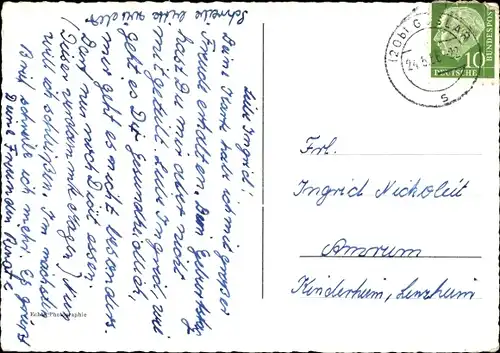 Schreibe bitte wieder
Liebe Ingrid!
Deine Karte habe ich mit großer
Freude erhalten. Dein Geburtstag
hast Du mir aber nicht
mitgeteilt. Liebe Ingrid, wie
geht es Dir Gesundheitlich,
mir geht es nicht besonders.
Darf nur noch Diät essen.
(Dieser verdammte Magen) Nun
will ich schließen. Im nächsten
Brief schreibe ich mehr. Es grüßt
Deine Freundin Renate
Echte Photographie
(20b) GOSLAR
24.5.
s
10
DEUTSCHE
BUNDESPOST
Frl.
Ingrid Nickoleit
Amrum
Kinderheim, Lenzheim